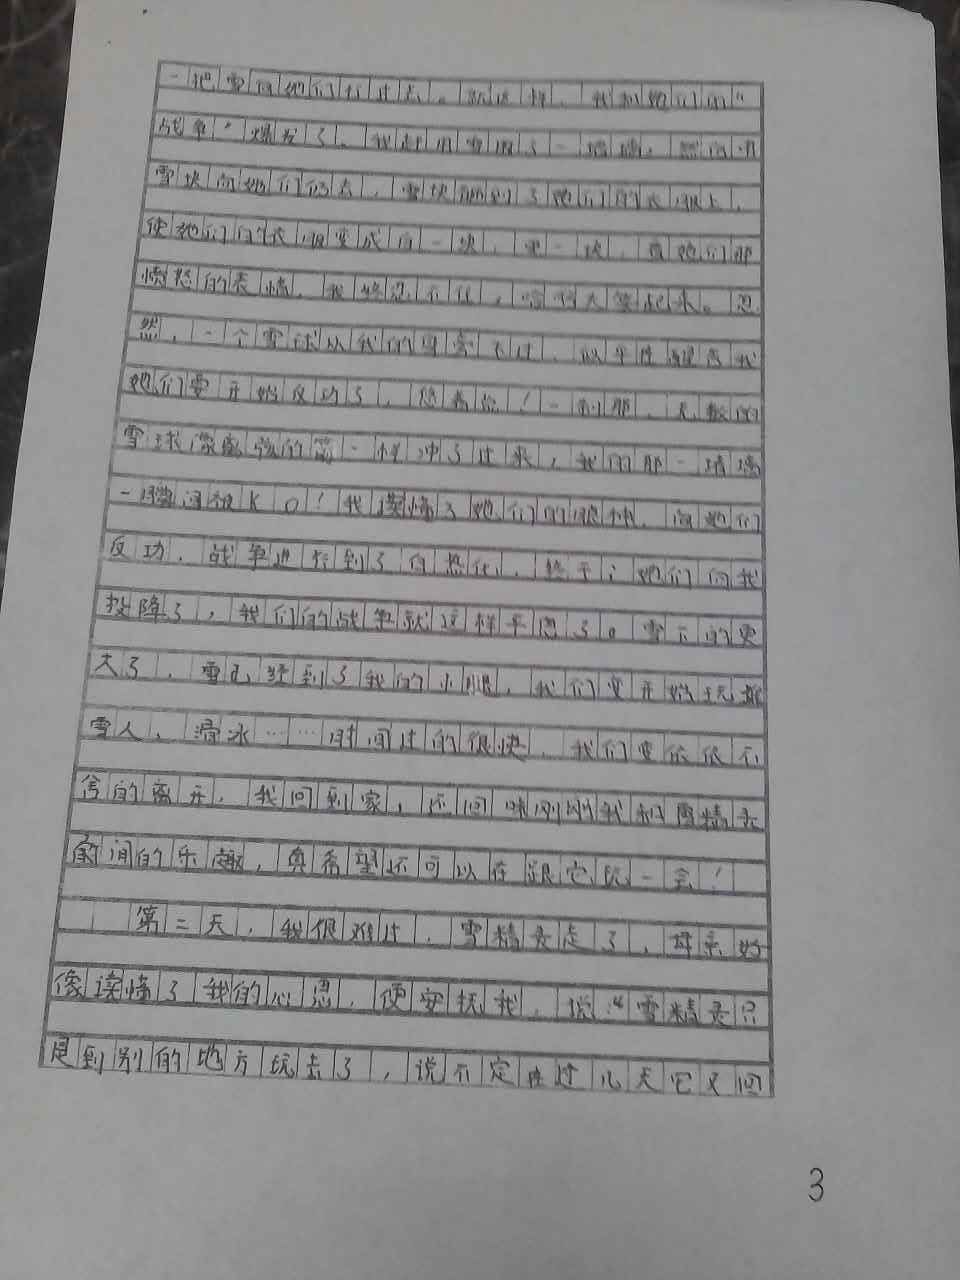 一把雪向她们打过去。就这样，我和她们的“
战争”爆发了。我赶用雪做了一堵墙，然后用
雪块向她们扔去，雪块砸到了她们的衣服上，
使她们的衣服变成白一块，黑一块，看她们那
愤怒的表情，我终忍不住，哈哈大笑起来。忽
然，一个雪球从我的耳旁飞过，似乎在提醒我
她们要开始反功了，您看说！一刹那，无数的
雪球像离弦的箭一样冲了过来，我的那一堵墙
一瞬间被KO！我读懂了她们的眼神，向她们
反功，战争进行到了白热化，终于，她们向我
投降了，我们的战争就这样平息了。雪下的更
大了，雪已经到了我的小腿，我们变开始玩堆
雪人、滑冰……时间过的很快，我们变依依不
舍的离开，我回到家，还回味刚刚我和雪精灵
间的乐趣，真希望还可以在跟它玩一会！
第二天，我很难过，雪精灵走了，母亲好
像读懂了我的心思，便安抚我，说：“雪精灵只
是到别的地方玩去了，说不定在过几天它又回
3